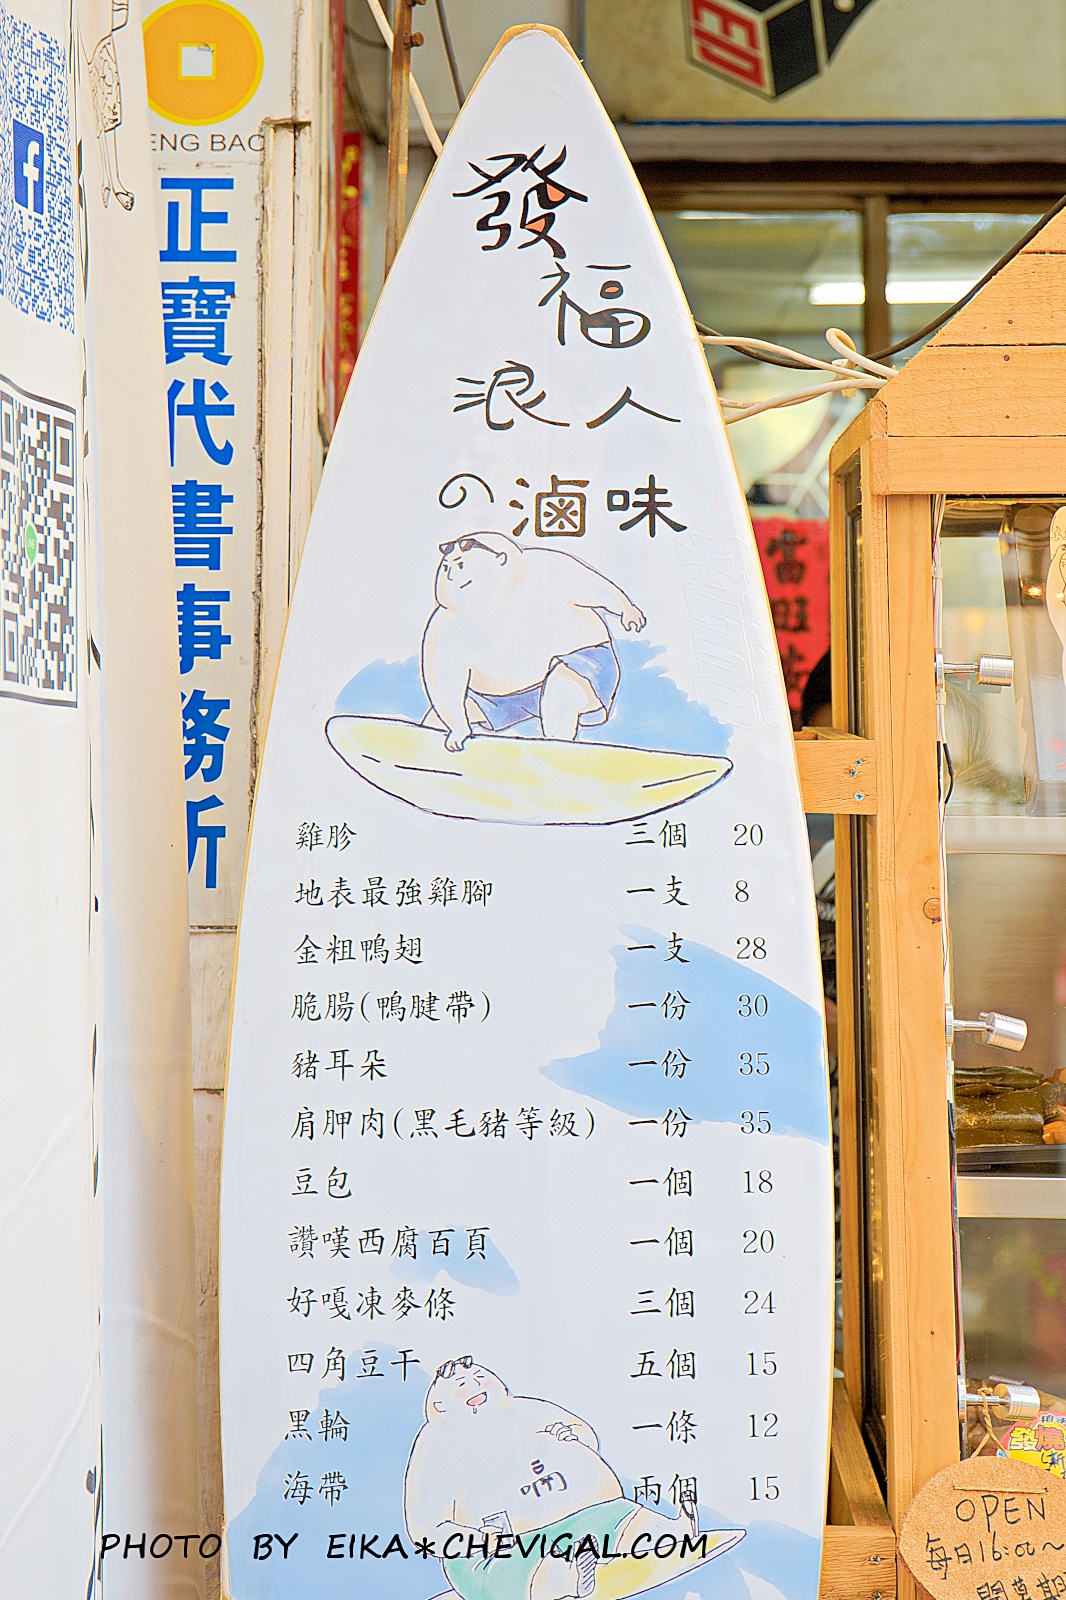 ENG BAO
正寶代書事務所
發
福
浪人
の滷味
雞胗 三個 20
地表最強雞腳 一支 8
金粗鴨翅 一支 28
脆腸(鴨腱帶) 一份 30
豬耳朵 一份 35
肩胛肉(黑毛豬等級) 一份 35
豆包 一個 18
讚嘆西腐百頁 一個 20
好嘎凍麥條 三個 24
四角豆干 五個 15
黑輪 一條 12
海帶 兩個 15
OPEN
每日16:00~
PHOTO BY EIKA*CHEVIGAL.COM